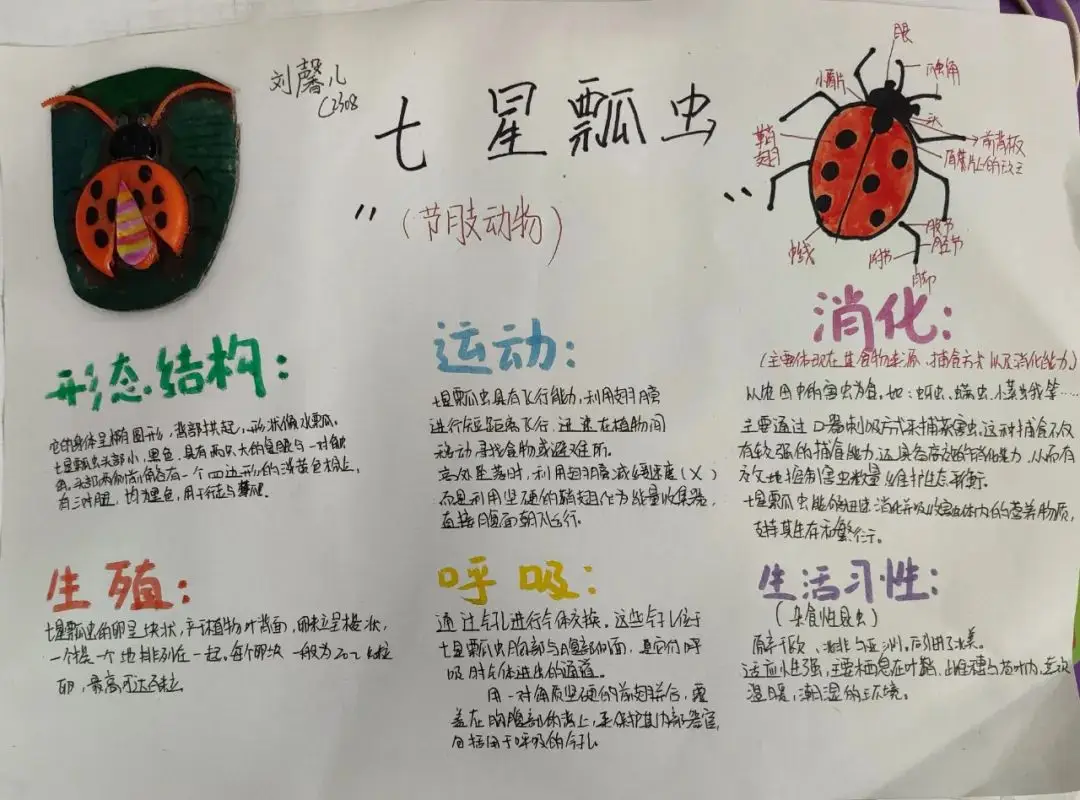 刘馨儿
C2308
七星瓢虫
(节肢动物)
眼
触角
小盾片
头
鞘翅
前背板
中线
股节
胫节
跗节
脚
形态结构:
它的身体呈椭圆形,背部拱起,形状像水瓢。
七星瓢虫头部小,黑色,具有两只大的复眼与一对触
角,头部两侧前角各有一个四边形的淡黄色
有三对腿,均为黑色,用于行走与攀爬。
运动:
七星瓢虫具有飞行能力,利用翅膀
进行短距离飞行,迅速在植物间
移动寻找食物或避难所。
高处坠落时,利用翅膀减缓速度(×)
而是利用坚硬的鞘翅作为能量收集器,
直接腹面朝
消化:
(主要体现在其食物来源、捕食方式以及消化能力)
从农田中的害虫为食,如:蚜虫、螨虫、小菜蛾等……
主要通过口器刺吸方式来捕获害虫,这种捕食不仅
有较强的捕食能力,还具备高效的消化能力,从而有
效地控制害虫数量,维护生态平衡。
七星瓢虫能够迅速消化并吸收害虫体内的营养物质,
支持其生存和繁衍。
生殖:
七星瓢虫的卵呈块状,产在植物叶背面,卵粒呈梭状,
一个接一个地排列在一起。每个卵块一般为20
卵,最高可达
呼吸:
通过气孔进行气体交换。这些气孔位于
七星瓢虫胸部与腹部侧面,是它们呼
吸时气体进出的通道。
用一对角质坚硬的前翅并合,覆
盖在胸腹部的背上,是保护其内部器官,
包括用于呼吸的气孔
生活习性:
(杂食性昆虫)
原产于欧、北非与亚洲。后引
适应性强,主要栖息在叶 与 喜欢
温暖,潮湿的环境。